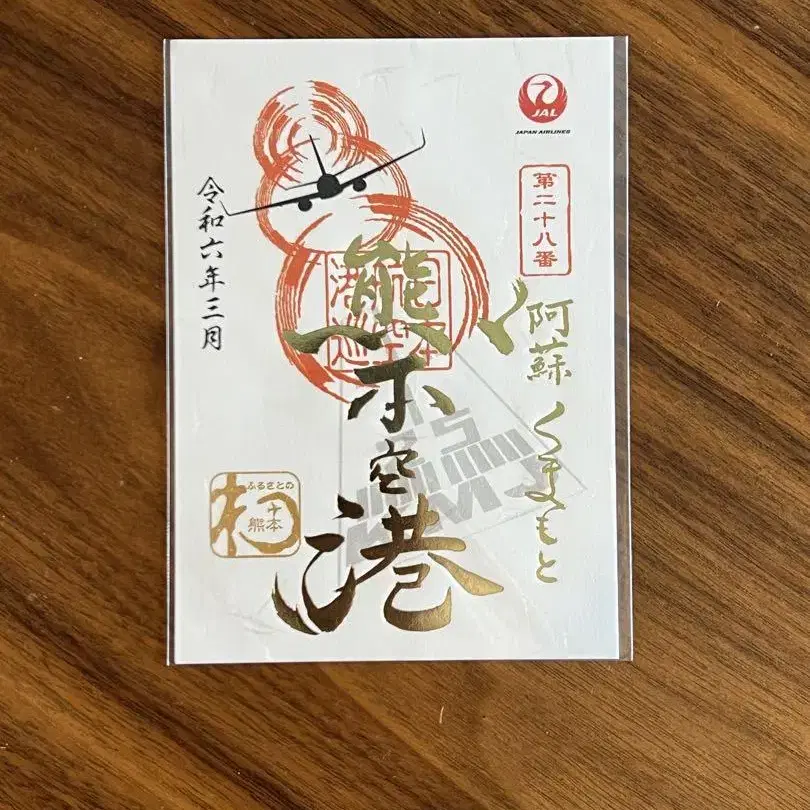 JAL
JAPAN AIRLINES
第二十八番
阿蘇くまもと
熊本空港
令和六年三月
ふるさとの
熊本
KMJ